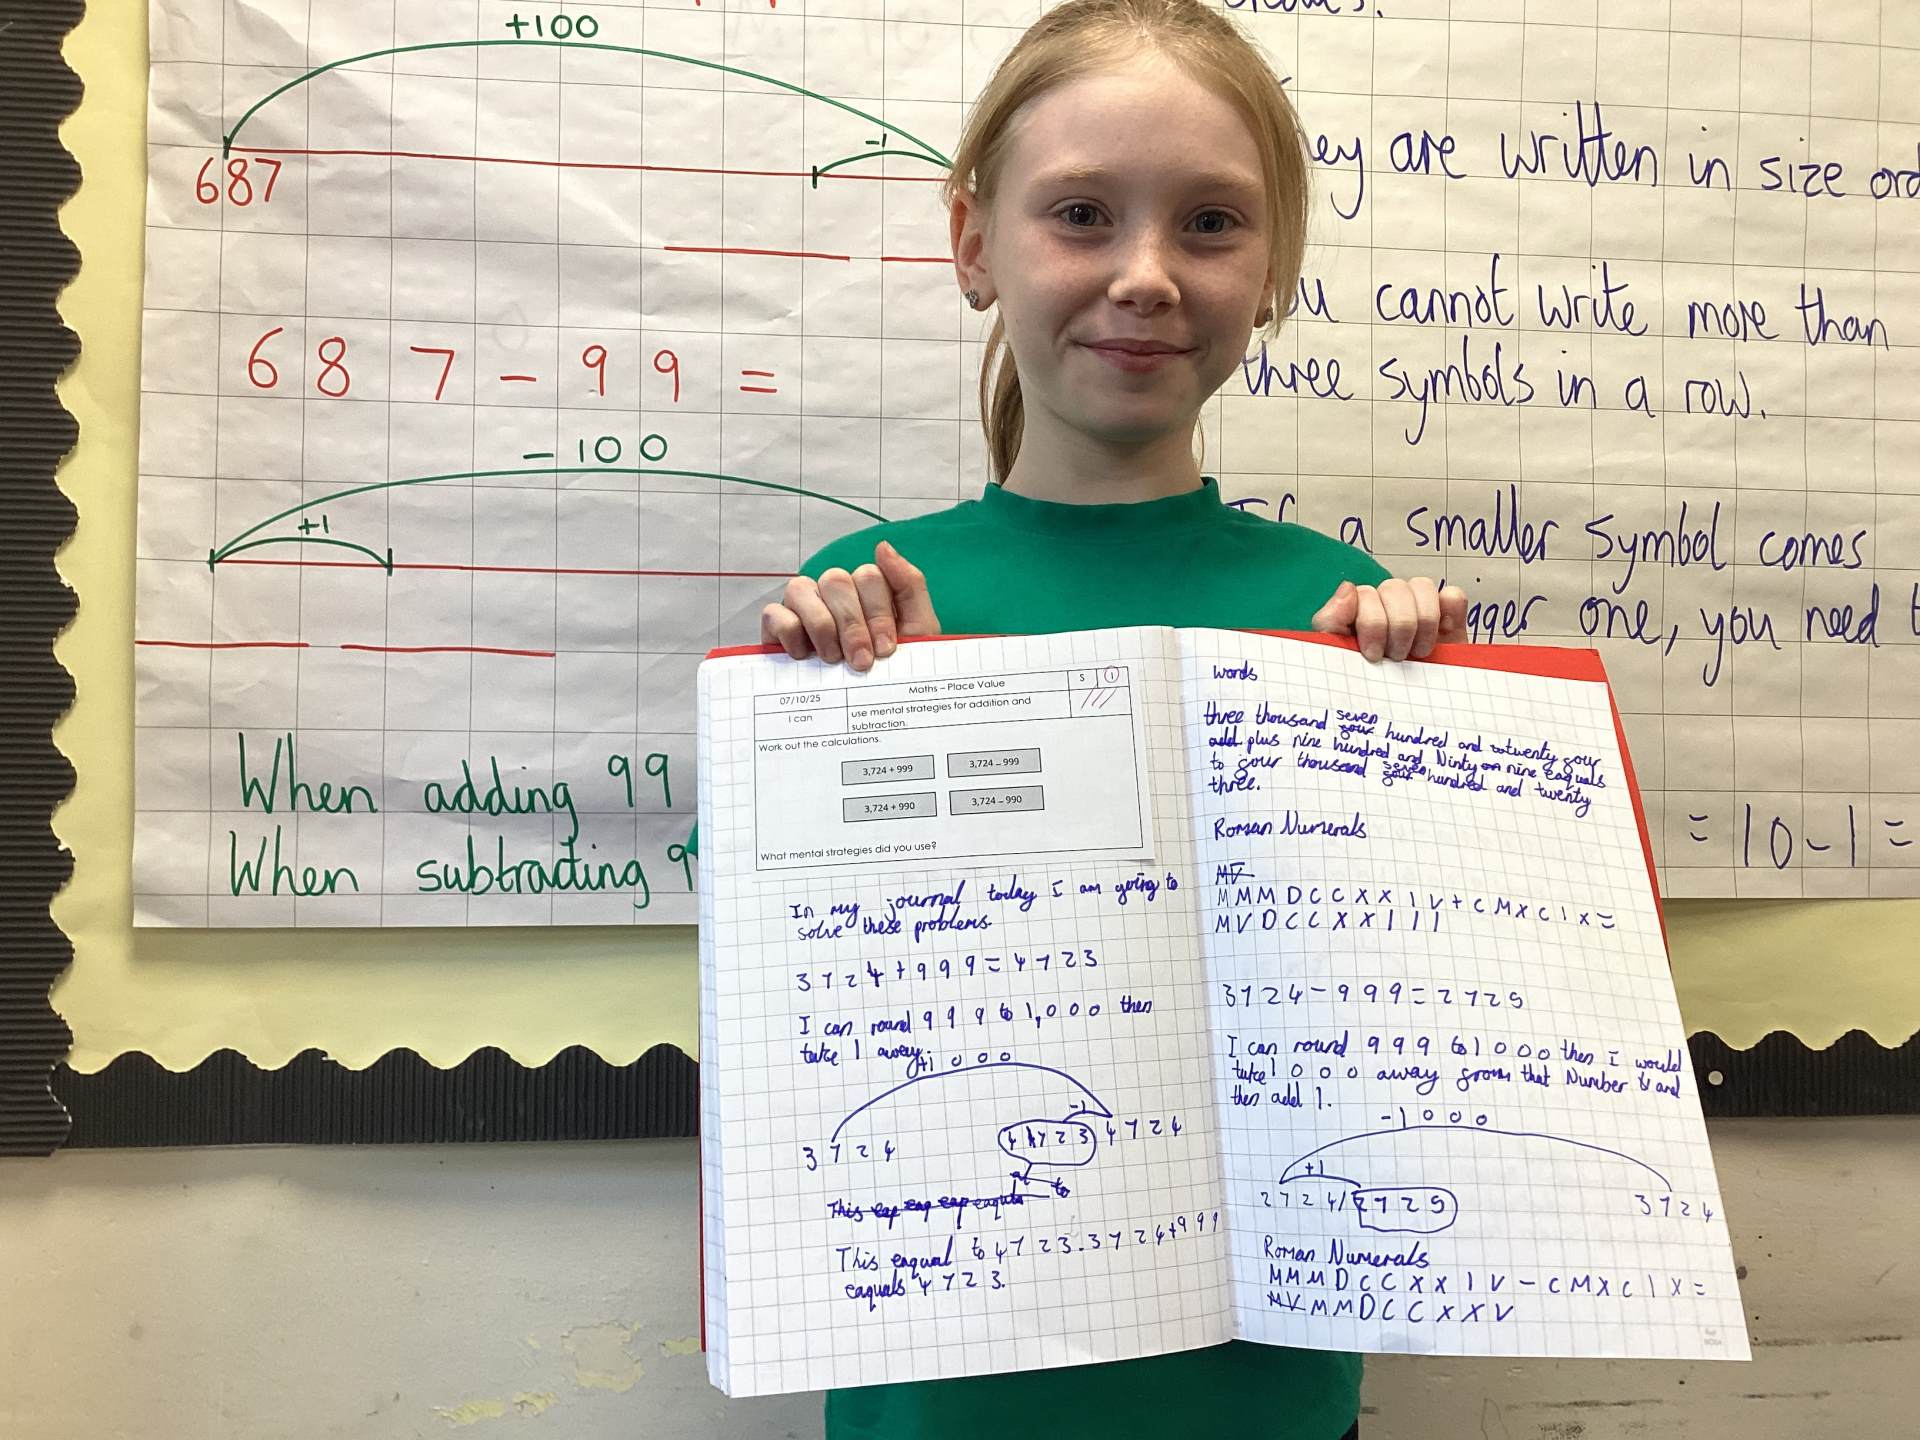 +100
-1
687
687-99=
-100
+1
When adding 99
When subtracting 9
ey are written in size ord
u cannot write more than
three symbols in a row.
If a smaller symbol comes
igger one, you need t
= 10-1 =
07/10/25 Maths – Place Value S 1
I can use mental strategies for addition and
subtraction.
Work out the calculations.
3,724 + 999 3,724 – 999
3,724 + 990 3,724 – 990
What mental strategies did you use?
In my journal today I am going to
solve these problems.
3724+999=4723
I can round 999 to 1,000 then
take 1 away.
+1000
-1
3724 4723 4724
This eaqual to 4723. 3724+999
eaquals 4723.
words
three thousand seven hundred and twenty four
add plus nine hundred and Ninty nine eaquals
to four thousand seven hundred and twenty
three.
Roman Numerals
MV
MMMDCCXXIV+CMXCIX=
MVDCCXXIII
3724-999=2725
I can round 999 to 1000 then I would
take 1000 away from that Number and
then add 1.
-1000
+1
2724/2725 3724
Roman Numerals
MMMDCCXXIV-CMXCIX=
MV MMDCCXXV